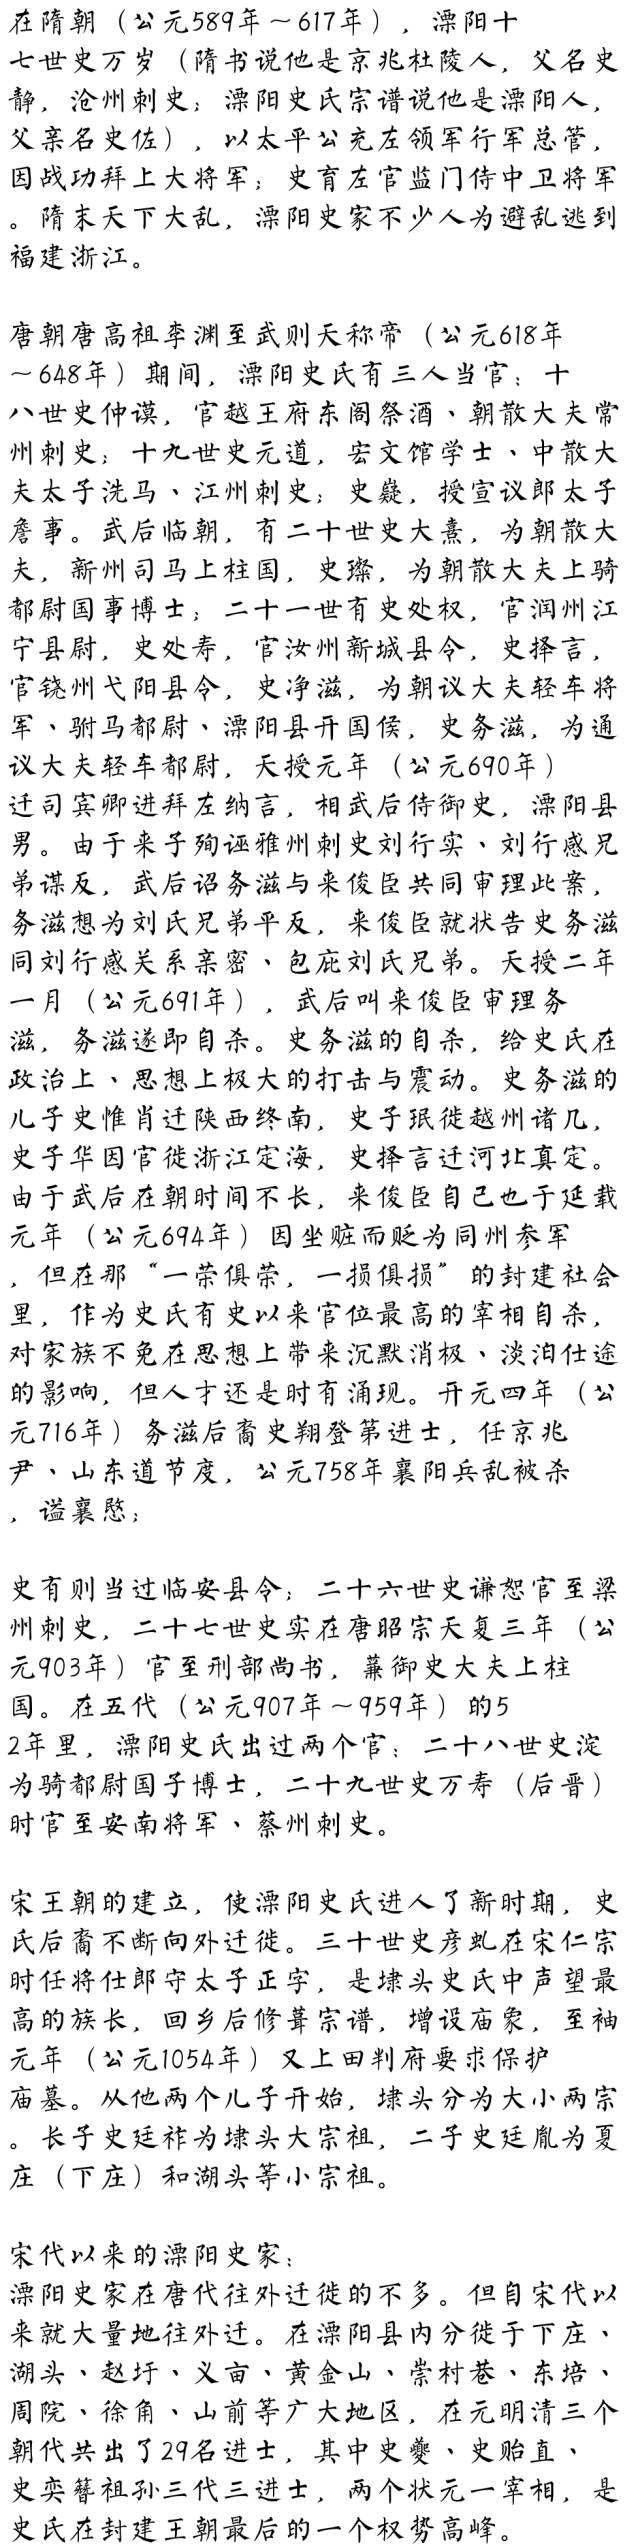 在隋朝（公元589年～617年），溧阳十
七世史万岁（隋书说他是京兆杜陵人，父名史
静，沧州刺史；溧阳史氏宗谱说他是溧阳人，
父亲名史佐），以太平公充左领军行军总管，
因战功拜上大将军；史育左官监门侍中卫将军
。隋末天下大乱，溧阳史家不少人为避乱逃到
福建浙江。
唐朝唐高祖李渊至武则天称帝（公元618年
～648年）期间，溧阳史氏有三人当官：十
八世史仲谟，官越王府东阁祭酒、朝散大夫常
州刺史；十九世史元道，宏文馆学士、中散大
夫太子洗马、江州刺史；史嶷，授宣议郎太子
詹事。武后临朝，有二十世史大熹，为朝散大
夫，新州司马上柱国，史璨，为朝散大夫上骑
都尉国事博士；二十一世有史处权，官润州江
宁县尉，史处寿，官汝州新城县令，史择言，
官铙州弋阳县令，史净滋，为朝议大夫轻车将
军、驸马都尉、溧阳县开国侯，史务滋，为通
议大夫轻车都尉，天授元年（公元690年）
迁司宾卿进拜左纳言，相武后侍御史，溧阳县
男。由于来子殉诬雅州刺史刘行实、刘行感兄
弟谋反，武后诏务滋与来俊臣共同审理此案，
务滋想为刘氏兄弟平反，来俊臣就状告史务滋
同刘行感关系亲密、包庇刘氏兄弟。天授二年
一月（公元691年），武后叫来俊臣审理务
滋，务滋遂即自杀。史务滋的自杀，给史氏在
政治上、思想上极大的打击与震动。史务滋的
儿子史惟肖迁陕西终南，史子珉徙越州诸几，
史子华因官徙浙江定海，史择言迁河北真定。
由于武后在朝时间不长，来俊臣自己也于延载
元年（公元694年）因坐赃而贬为同州参军
，但在那“一荣俱荣，一损俱损”的封建社会
里，作为史氏有史以来官位最高的宰相自杀，
对家族不免在思想上带来沉默消极、淡泊仕途
的影响，但人才还是时有涌现。开元四年（公
元716年）务滋后裔史翔登第进士，任京兆
尹、山东道节度，公元758年襄阳兵乱被杀
，谥襄愍；
史有则当过临安县令；二十六世史谦恕官至梁
州刺史，二十七世史实在唐昭宗天复三年（公
元903年）官至刑部尚书，蒹御史大夫上柱
国。在五代（公元907年～959年）的5
2年里，溧阳史氏出过两个官：二十八世史淀
为骑都尉国子博士，二十九世史万寿（后晋）
时官至安南将军、蔡州刺史。
宋王朝的建立，使溧阳史氏进人了新时期，史
氏后裔不断向外迁徙。三十世史彦虬在宋仁宗
时任将仕郎守太子正字，是埭头史氏中声望最
高的族长，回乡后修葺宗谱，增设庙象，至袖
元年（公元1054年）又上田判府要求保护
庙墓。从他两个儿子开始，埭头分为大小两宗
。长子史廷祚为埭头大宗祖，二子史廷胤为夏
庄（下庄）和湖头等小宗祖。
宋代以来的溧阳史家：
溧阳史家在唐代往外迁徙的不多。但自宋代以
来就大量地往外迁。在溧阳县内分徙于下庄、
湖头、赵圩、义亩、黄金山、崇村巷、东培、
周院、徐角、山前等广大地区，在元明清三个
朝代共出了29名进士，其中史夔、史贻直、
史奕簪祖孙三代三进士，两个状元一宰相，是
史氏在封建王朝最后的一个权势高峰。